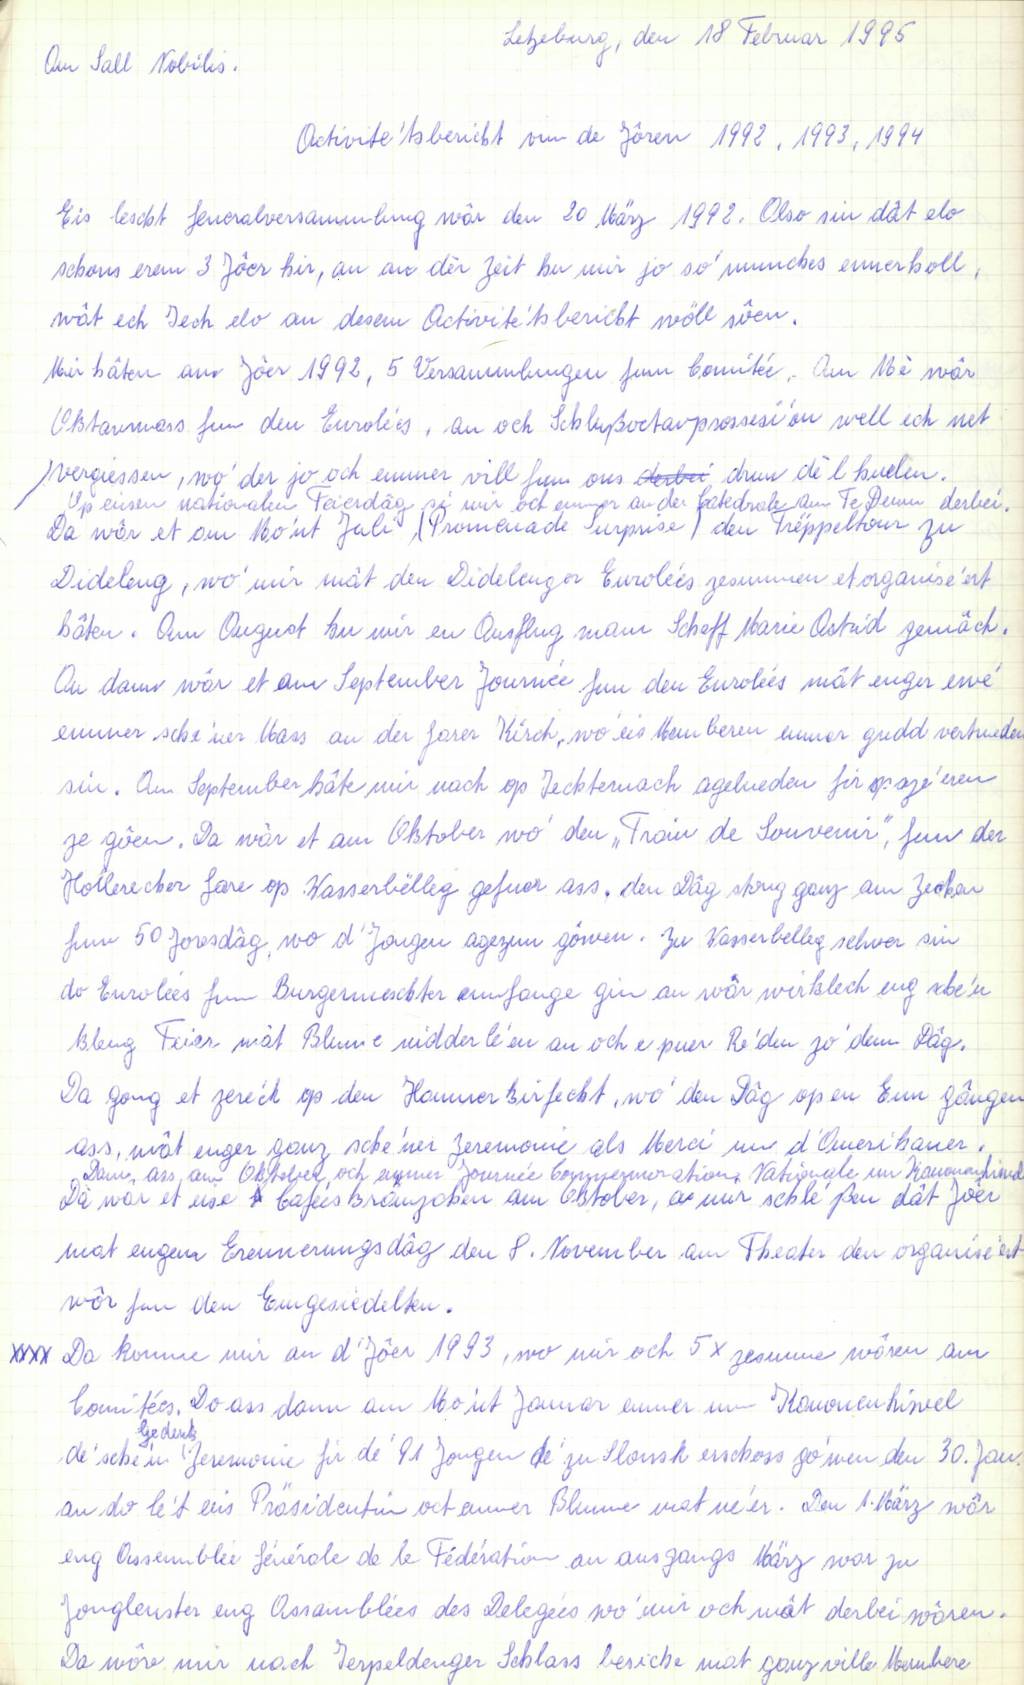 Letzeburg, den 18 Februar 1995
Am Sall Nobilis.
Activite'tsbericht vun de Jôren 1992, 1993, 1994
Eis lescht Generalversammlung wâr den 20 März 1992. Also sin dât elo
schons erem 3 Jôer hir, an an dèr Zeit hu mir jo so' munches ennerholl,
wât ech Iech elo an desem Activite'tsbericht wöll sôen.
Mir hâten am Jôer 1992, 5 Versammlungen fum Comitée. Am Mê wâr
Oktavmass fun den Enrolées, an och Schlußoctavprossesi'on well ech net
vergiessen, wo' der jo och emmer vill fun ons derbei drun dêl huelen.
Op eisem nationalen Feierdâg si mir och emmer an der Catedrale am Te Deum derbei.
Da wâr et am Mo'nt Juli, (Promenade Surprise) den Treppeltour zu
Dideleng, wo' mir mât den Didelenger Enrolées zesummen et organise'ert
hâten. Am August hu mir en Ausflug mam Scheff Marie Astrid gemâch.
An dann wâr et am September Journée fun den Enrolées mât enger ewe'
emmer sche'ner Mass an der Garer Kirch, wo' eis Memberen emmer gudd vertrueden
sin. Am September hâte mir nach op Iechternach agelueden fir spaze'eren
ze gôen. Da wâr et am Oktober wo' den „Train de Souvenir“, fun der
Hollerecher Gare op Wasserbëlleg gefuer ass, den Dâg stong ganz am Zechen
fum 50 Joresdâg, wo d'Jongen agezun gówen. Zu Wasserbelleg selwer sin
do Enrolées fum Burgermeschter emfange gin an wâr wirklech eng sche'n
kleng Feier mât Blume nidderle'en an och e puer Re'den zo' dem Dâg.
Da gong et zereck op den Hollerecher Kirfecht, wo' den Dâg op en Enn gângen
ass, mât enger ganz sche'ner Zeremonie als Merci un d'Amerikaner.
Dann ass am Oktober och emmer Journée Commemoration Nationale um Kanounenhiwel
Da war et eise Cafés Kränzchen am Oktober, a mir schle'ßen dât Jôer
mat engem Erennerungsdâg den 8. November am Theater den organise'ert
wôr fun den Emgesiedelten.
xxxx Da komme mir an d'Jôer 1993, wo mir och 5 x zesumme wâren am
Comitées. Do ass dann am Mo'nt Januar emmer um Kanounenhiwel
de' sche'n Gedenk Zeremonie fir de' 91 Jongen de' zu Slonsk erschoss go'wen den 30. Jan.
an do le't eis Präsidentin och emmer Blumme mat ne'er. Den 1. März wâr
eng Assemblée Générale de la Fédération an ausgangs März war zu
Jonglenster eng Assamblées des Delegées wo' mir och mât derbei wâren.
Da wâre mir nach Ierpeldenger Schlass besiche mat ganz ville Membere